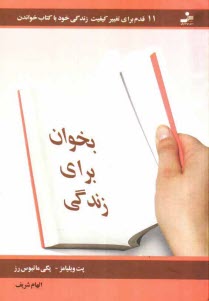 ۱۱ قدم برای تغییر کیفیت زندگی خود با کتاب خواندن
بخوان
برای
زندگی
پت ویلیامز - پگی ماتیوس رز
الهام شریف